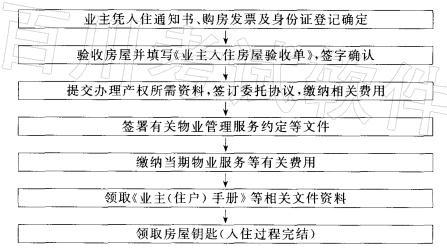 业主凭入住通知书、购房发票及身份证登记确定
验收房屋并填写《业主入住房屋验收单》,签字确认
提交办理产权所需资料,签订委托协议,缴纳相关费用
签署有关物业管理服务约定等文件
缴纳当期物业服务等有关费用
领取《业主(住户)手册》等相关文件资料
领取房屋钥匙(入住过程完结)
百川考试软件